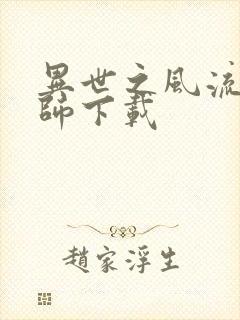 異世之風流
師下載
趙家浮生